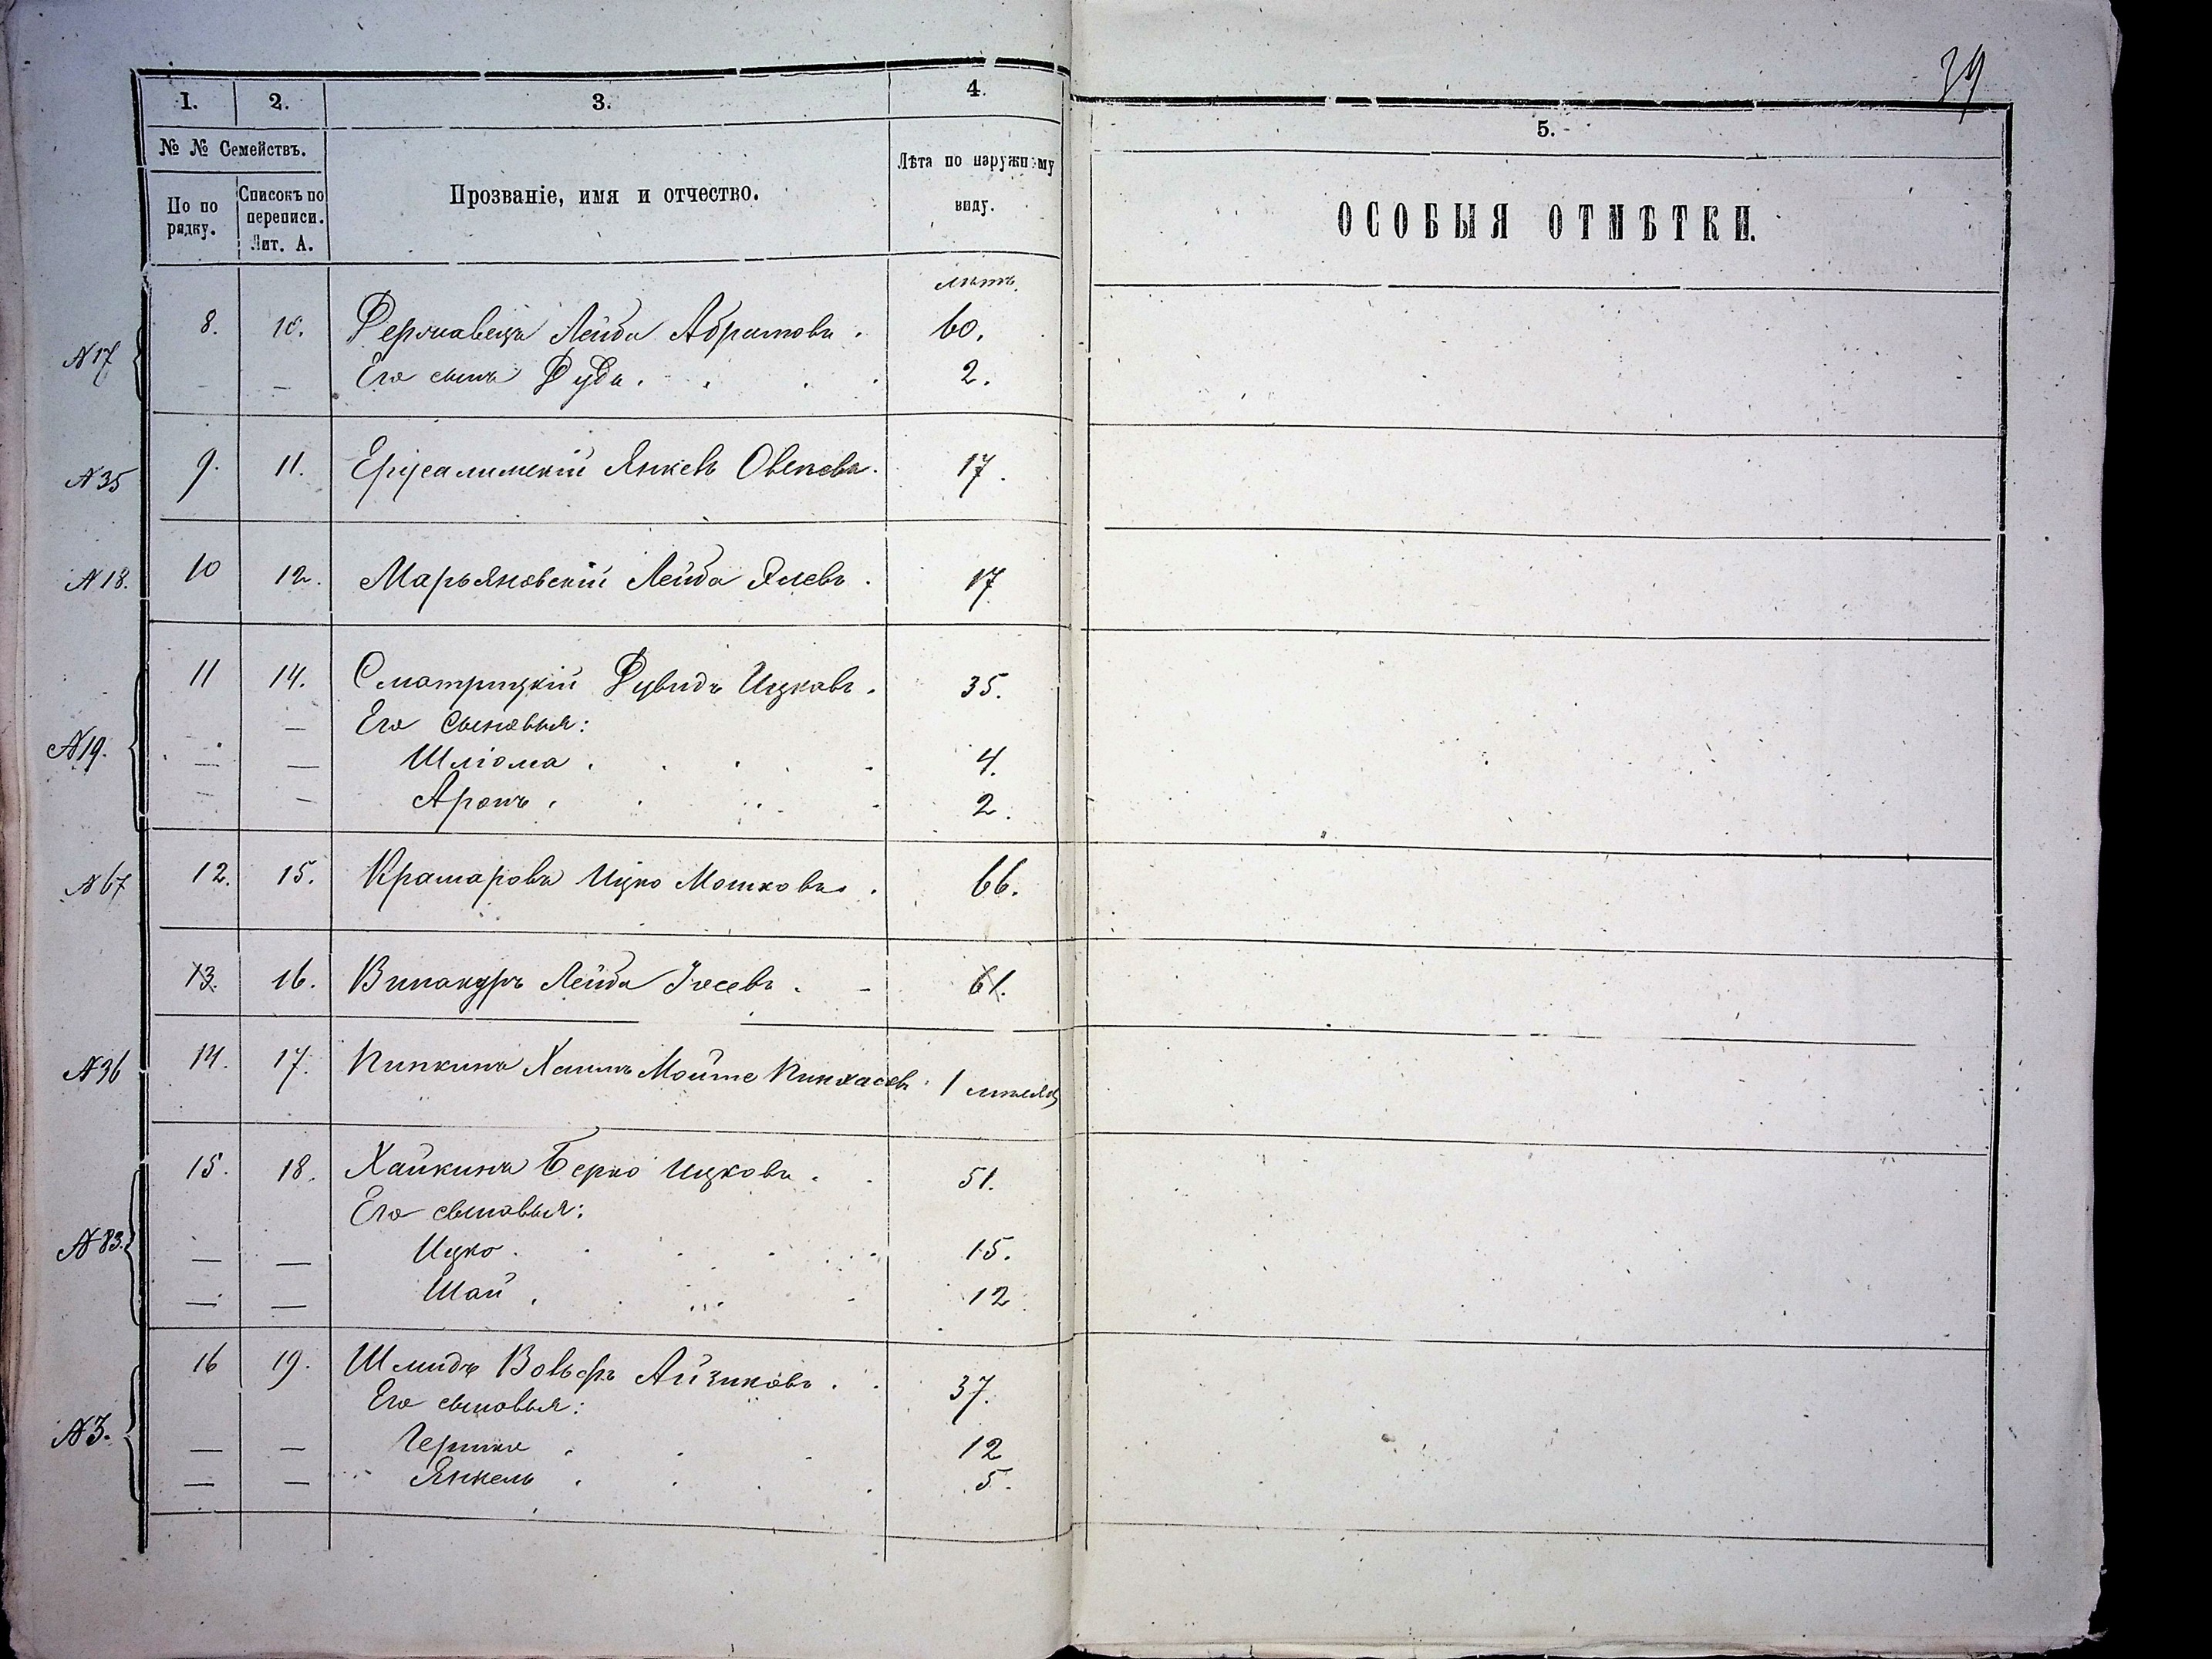 39
1. 2. 3. 4. 5.
№ № Семействъ.
По по рядку.
Списокъ по переписи. Лит. А.
Прозваніе, имя и отчество.
Лѣта по наружному виду.
ОСОБЫЯ ОТМѢТКИ.
лѣтъ.
№17 8. 10. Державецъ Лейба Абрамовъ. 60.
— — Его сынъ Дудь. 2.
№35 9. 11. Ерусалимскій Янкель 17.
№18. 10 12. Марьяновскій Лейба 17
№19. 11 14. Смотрицкій Дувидъ Ицковъ. 35.
— Его сыновья:
— — Шліома. 4.
— — Аронъ. 2.
№67 12. 15. Крамаровъ Ицко Мошковъ. 66.
13. 16. Винокуръ Лейба Іосевъ. 61.
№36 14. 17. Пинкинъ Хаимъ Мойше Пинхасовъ. 1 мѣсяцъ
№83. 15. 18. Хайкинъ Берко Ицковъ. 51.
Его сыновья:
— — Ицко. 15.
— — Шай. 12
№3. 16 19. Шмидъ Вольфъ Айзиковъ. 37.
Его сыновья:
— — Гершко 12
— — Янкель. 5.